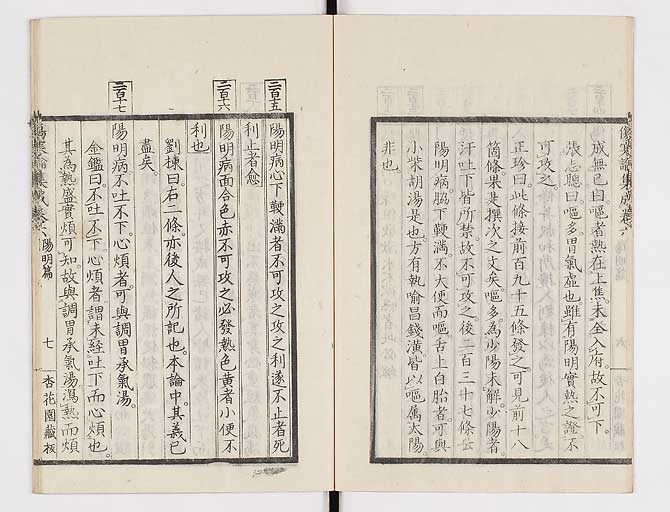 傷寒論集成卷六
成無已曰嘔者熱在上焦未全入府故不可下
張志聰曰嘔多胃氣虛也雖有陽明實熱之證不
可攻之
正珍曰此條接前百九十五條發之可見前十八
箇條
撰次之文矣嘔多為少陽未解少陽者
汗吐下皆所禁故不可攻之後二百三十七條云
陽明病脇下鞕滿不大便而嘔舌上白胎者可與
小柴胡湯是也方有執喻昌錢潢皆以嘔属太陽
非也
二百十五
陽明病心下鞕滿者不可攻之攻之利遂不止者死
利止者愈
二百十六
陽明病面合色赤不可攻之必發熱色黄者小便不
利也
劉棟曰右二條亦後人之所記也本論中其義已
盡矣
二百十七
陽明病不吐不下心煩者可與調胃承氣湯
金鑑曰不吐不下心煩者謂未經吐下而心煩也
其為熱盛實煩可知故與調胃承氣湯瀉熱而煩
陽明篇
七
杏花園藏板